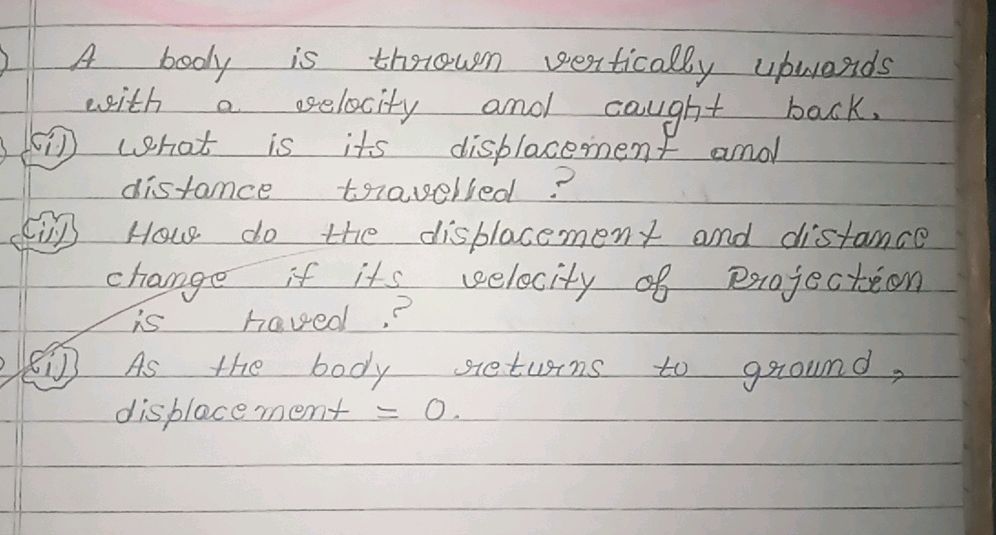 A body is thrown vertically upwards
with a velocity and caught back.
(i) What is its displacement and
distance travelled ?
(ii) How do the displacement and distance
change if its velocity of Projection
is haved ?
(i) As the body returns to ground,
displacement = 0.